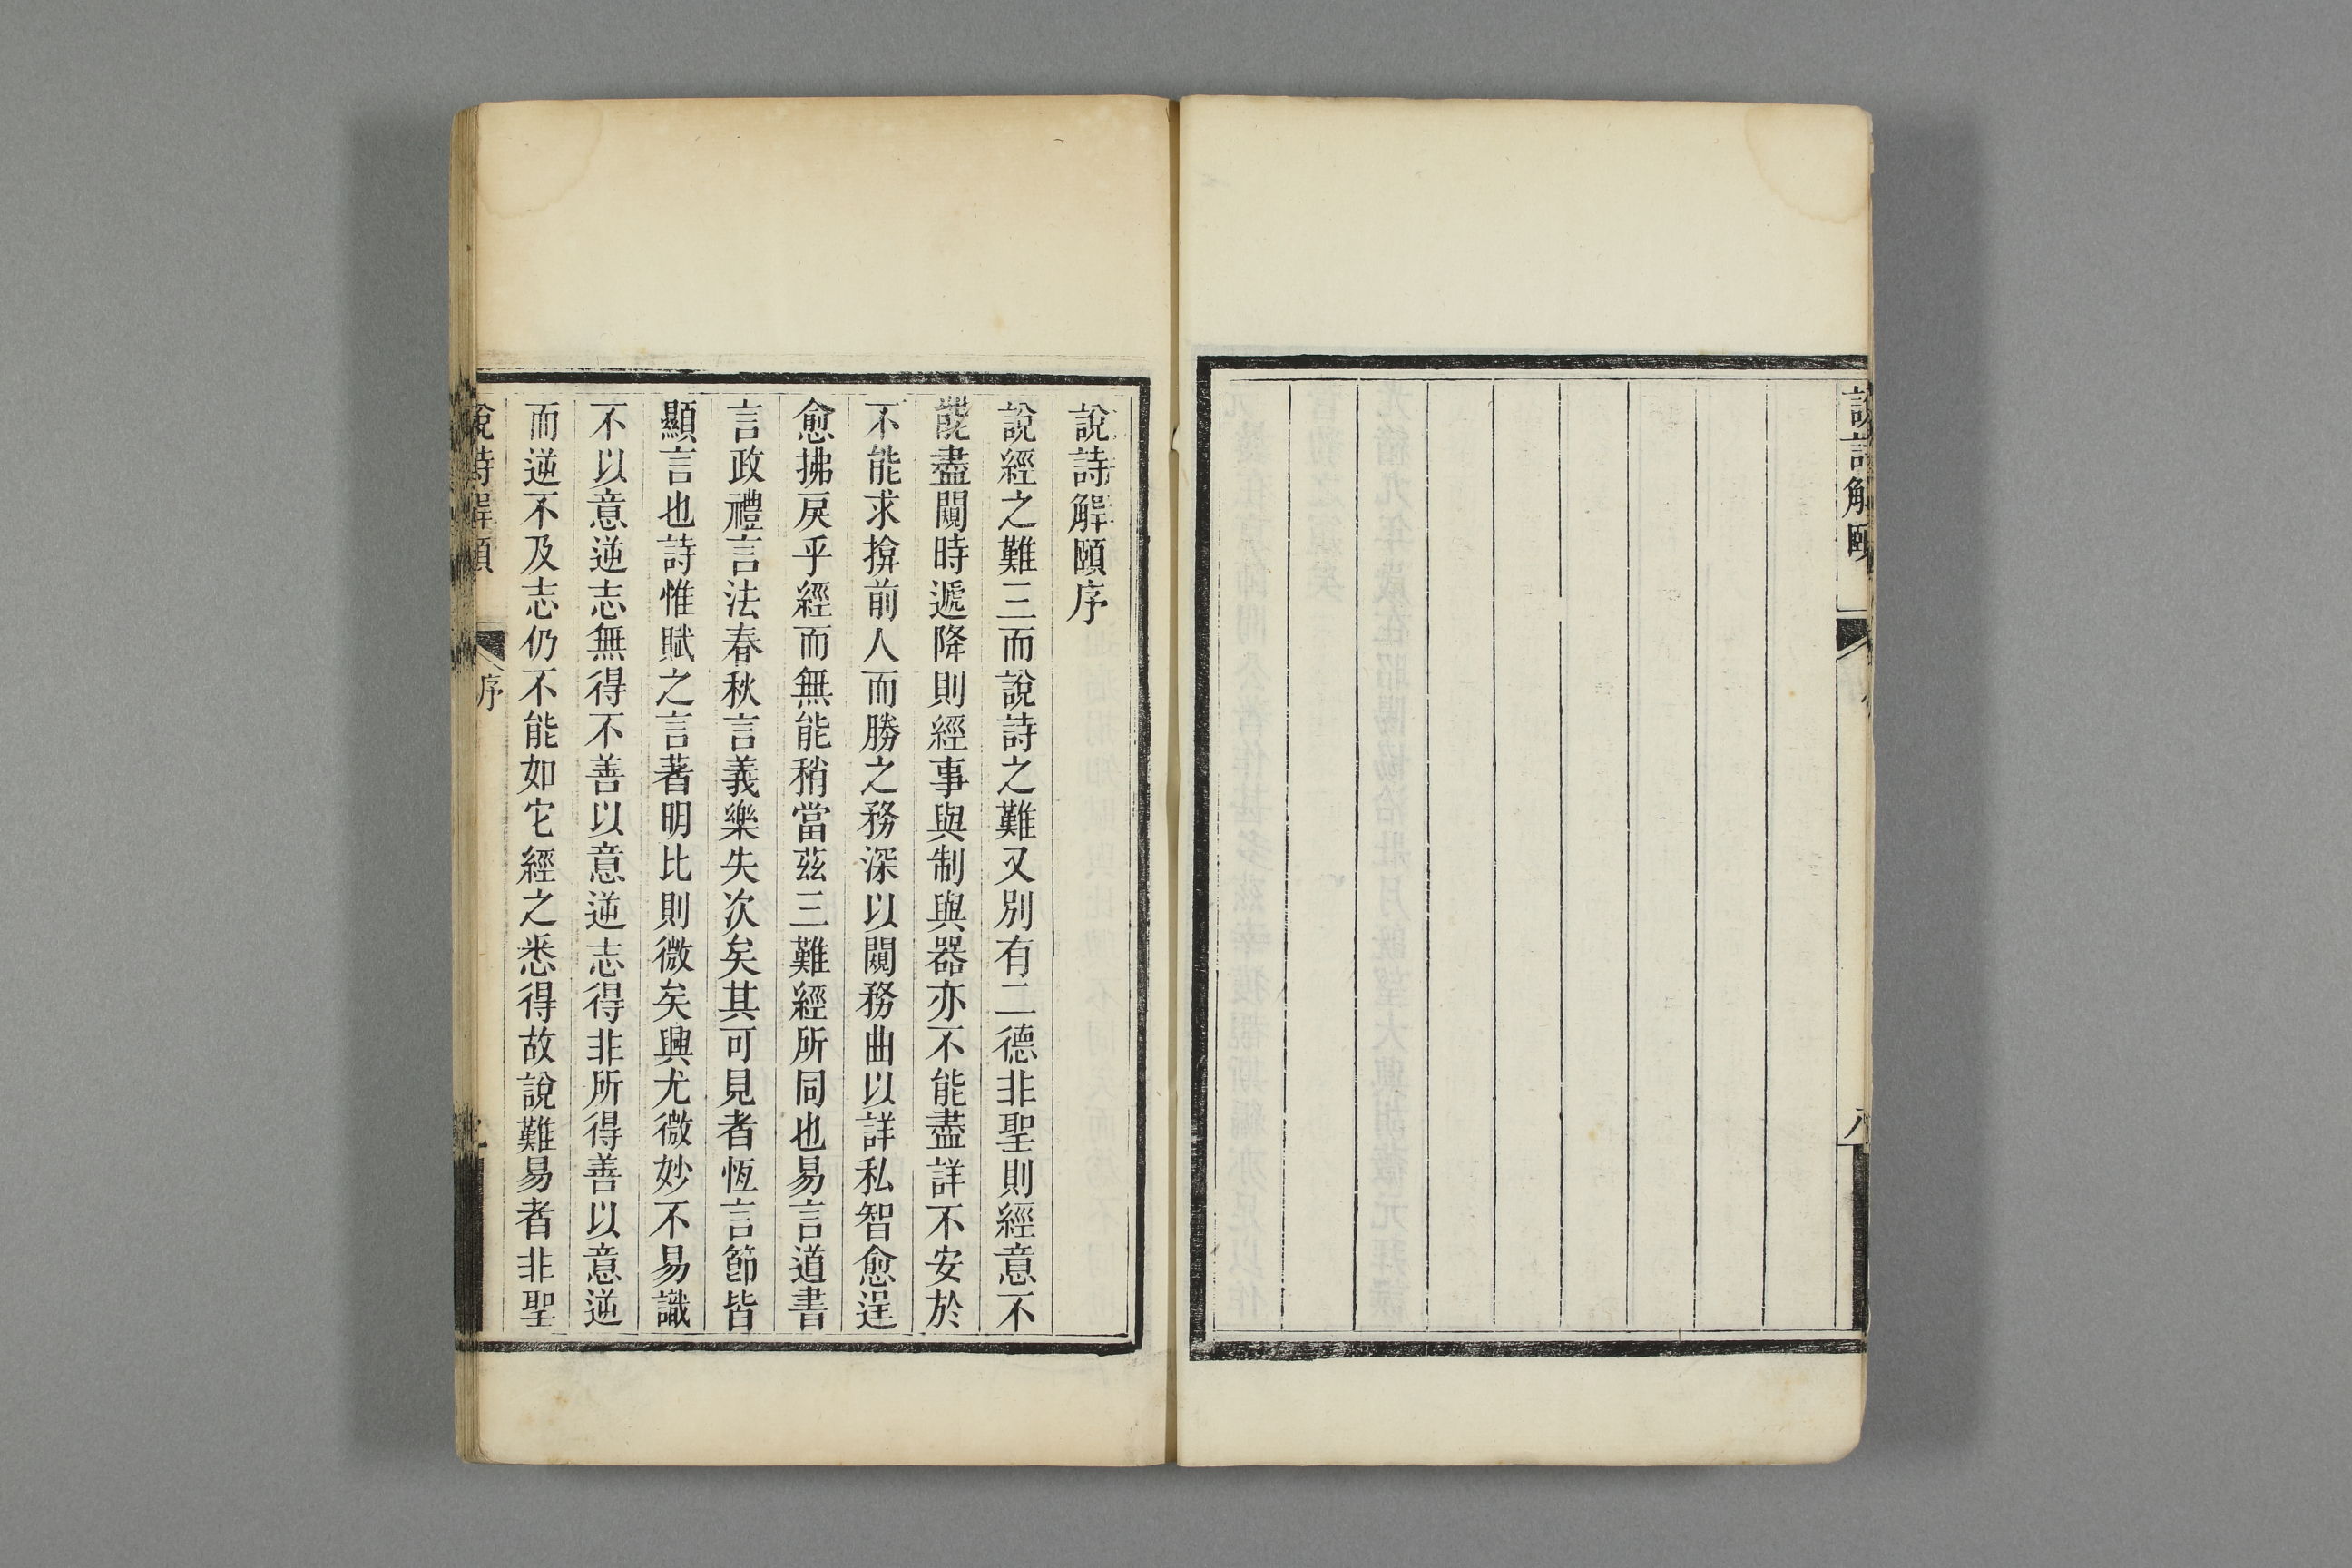 說詩解頤
八
說詩解頤序
說經之難三而說詩之難又別有二德非聖則經意不
能盡闚時遞降則經事與制與器亦不能盡詳不安於
不能求揜前人而勝之務深以闚務曲以詳私智愈逞
愈拂戾乎經而無能稍當茲三難經所同也易言道書
言政禮言法春秋言義樂失次矣其可見者恆言節皆
顯言也詩惟賦之言著明比則微矣興尤微妙不易識
不以意逆志無得不善以意逆志得非所得善以意逆
而逆不及志仍不能如它經之悉得故說難易者非聖
說詩解頤
序